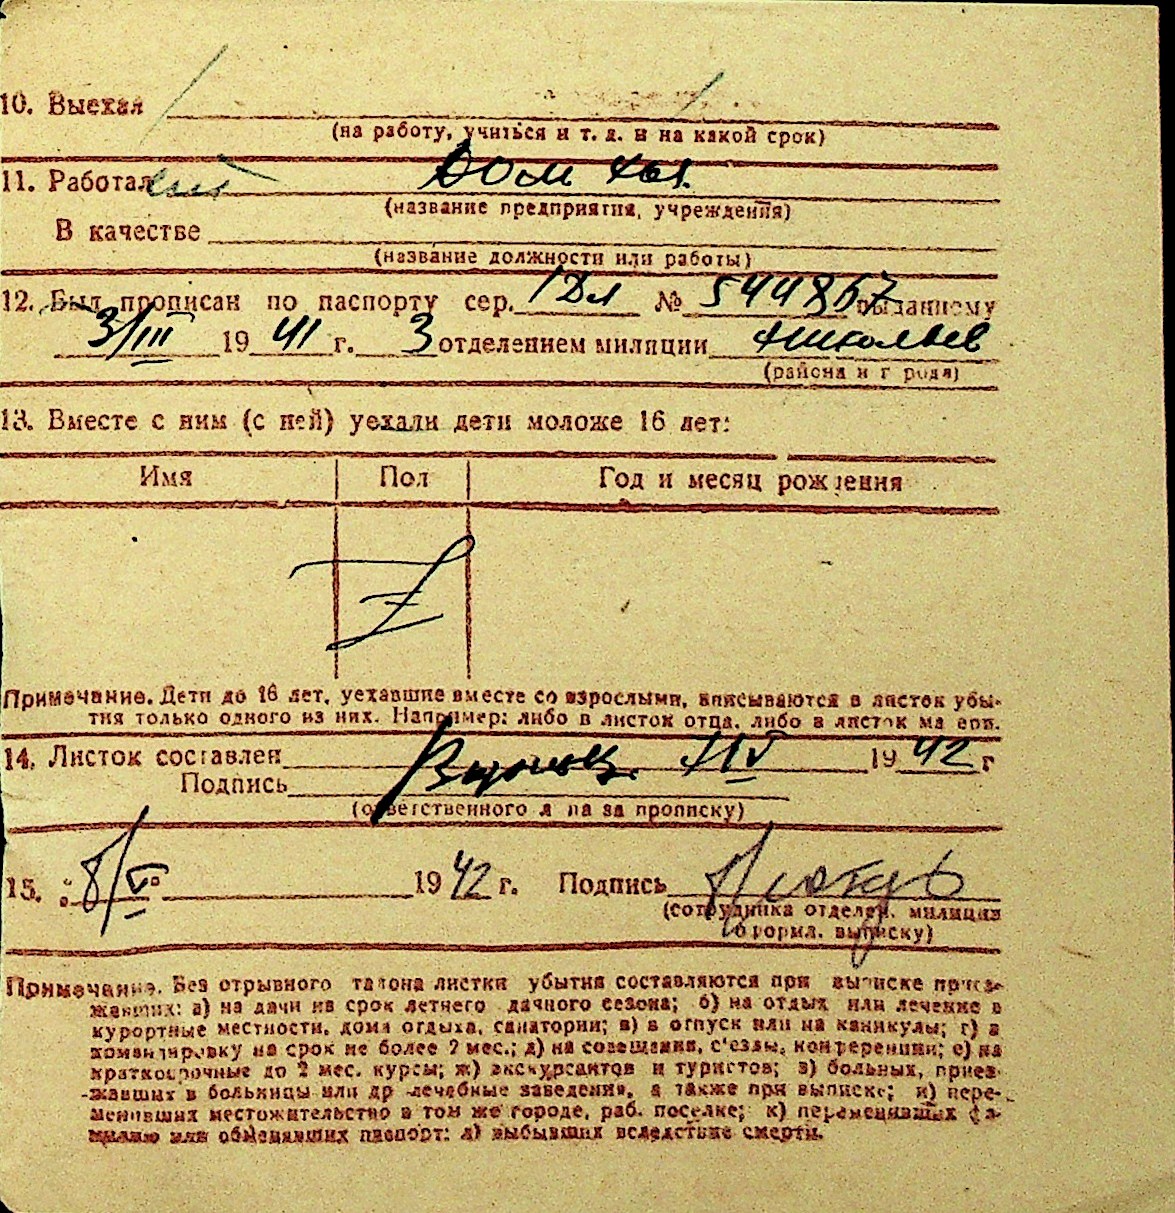 10. Выехал
(на работу, учиться и т. д. и на какой срок)
11. Работал Дом хоз.
(название предприятия, учреждения)
В качестве
(название должности или работы)
12. Был прописан по паспорту сер. № 544867 выданному
3/III 1941 г. 3 отделением милиции Николаев
(района и города)
13. Вместе с ним (с ней) уехали дети моложе 16 лет:
Имя Пол Год и месяц рождения
Z
Примечание. Дети до 16 лет, уехавшие вместе со взрослыми, вписываются в листок убы-
тия только одного из них. Например: либо в листок отца, либо в листок матери.
14. Листок составлен 1942 г
Подпись
(ответственного лица за прописку)
15. „8/V“ 1942 г. Подпись
(сотрудника отделен. милиции
оформл. выписку)
Примечание. Без отрывного талона листки убытия составляются при выписке приез-
жавших: а) на дачи на срок летнего дачного сезона; б) на отдых или лечение в
курортные местности, дома отдыха, санатории; в) в отпуск или на каникулы; г) в
командировку на срок не более 2 мес.; д) на совещания, с'езды, конференции; е) на
краткосрочные до 2 мес. курсы; ж) экскурсантов и туристов; з) больных, приез-
жавших в больницы или др лечебные заведения, а также при выписке; и) пере-
менивших местожительство в том же городе, раб. поселке; к) переменивших фа-
милию или обменявших паспорт; л) выбывших вследствие смерти.